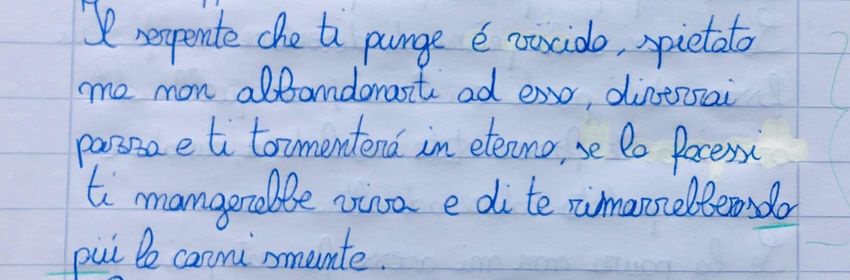 Il serpente che ti punge é viscido, spietato
ma non abbandonarti ad esso, diverrai
pazza e ti tormenterá in eterno, se lo facessi
ti mangerebbe viva e di te rimarrebbero solo
piú le carni smunte.